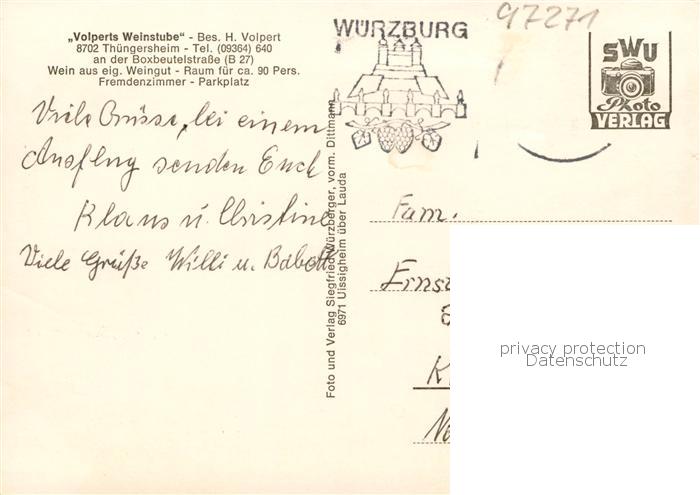 „Volperts Weinstube" - Bes. H. Volpert
8702 Thüngersheim - Tel. (09364) 640
an der Boxbeutelstraße (B 27)
Wein aus eig. Weingut - Raum für ca. 90 Pers.
Fremdenzimmer - Parkplatz
WÜRZBURG
97271
SWU
Photo
VERLAG
Viele Grüsse, bei einem
Ausflug senden Euch
Klaus u. Christine
Viele Grüße Willi u. Babett
Foto und Verlag Siegfried Würzberger, vorm. Dittmann
6971 Uissigheim über Lauda
Fam.
Erns
K
privacy protection
Datenschutz